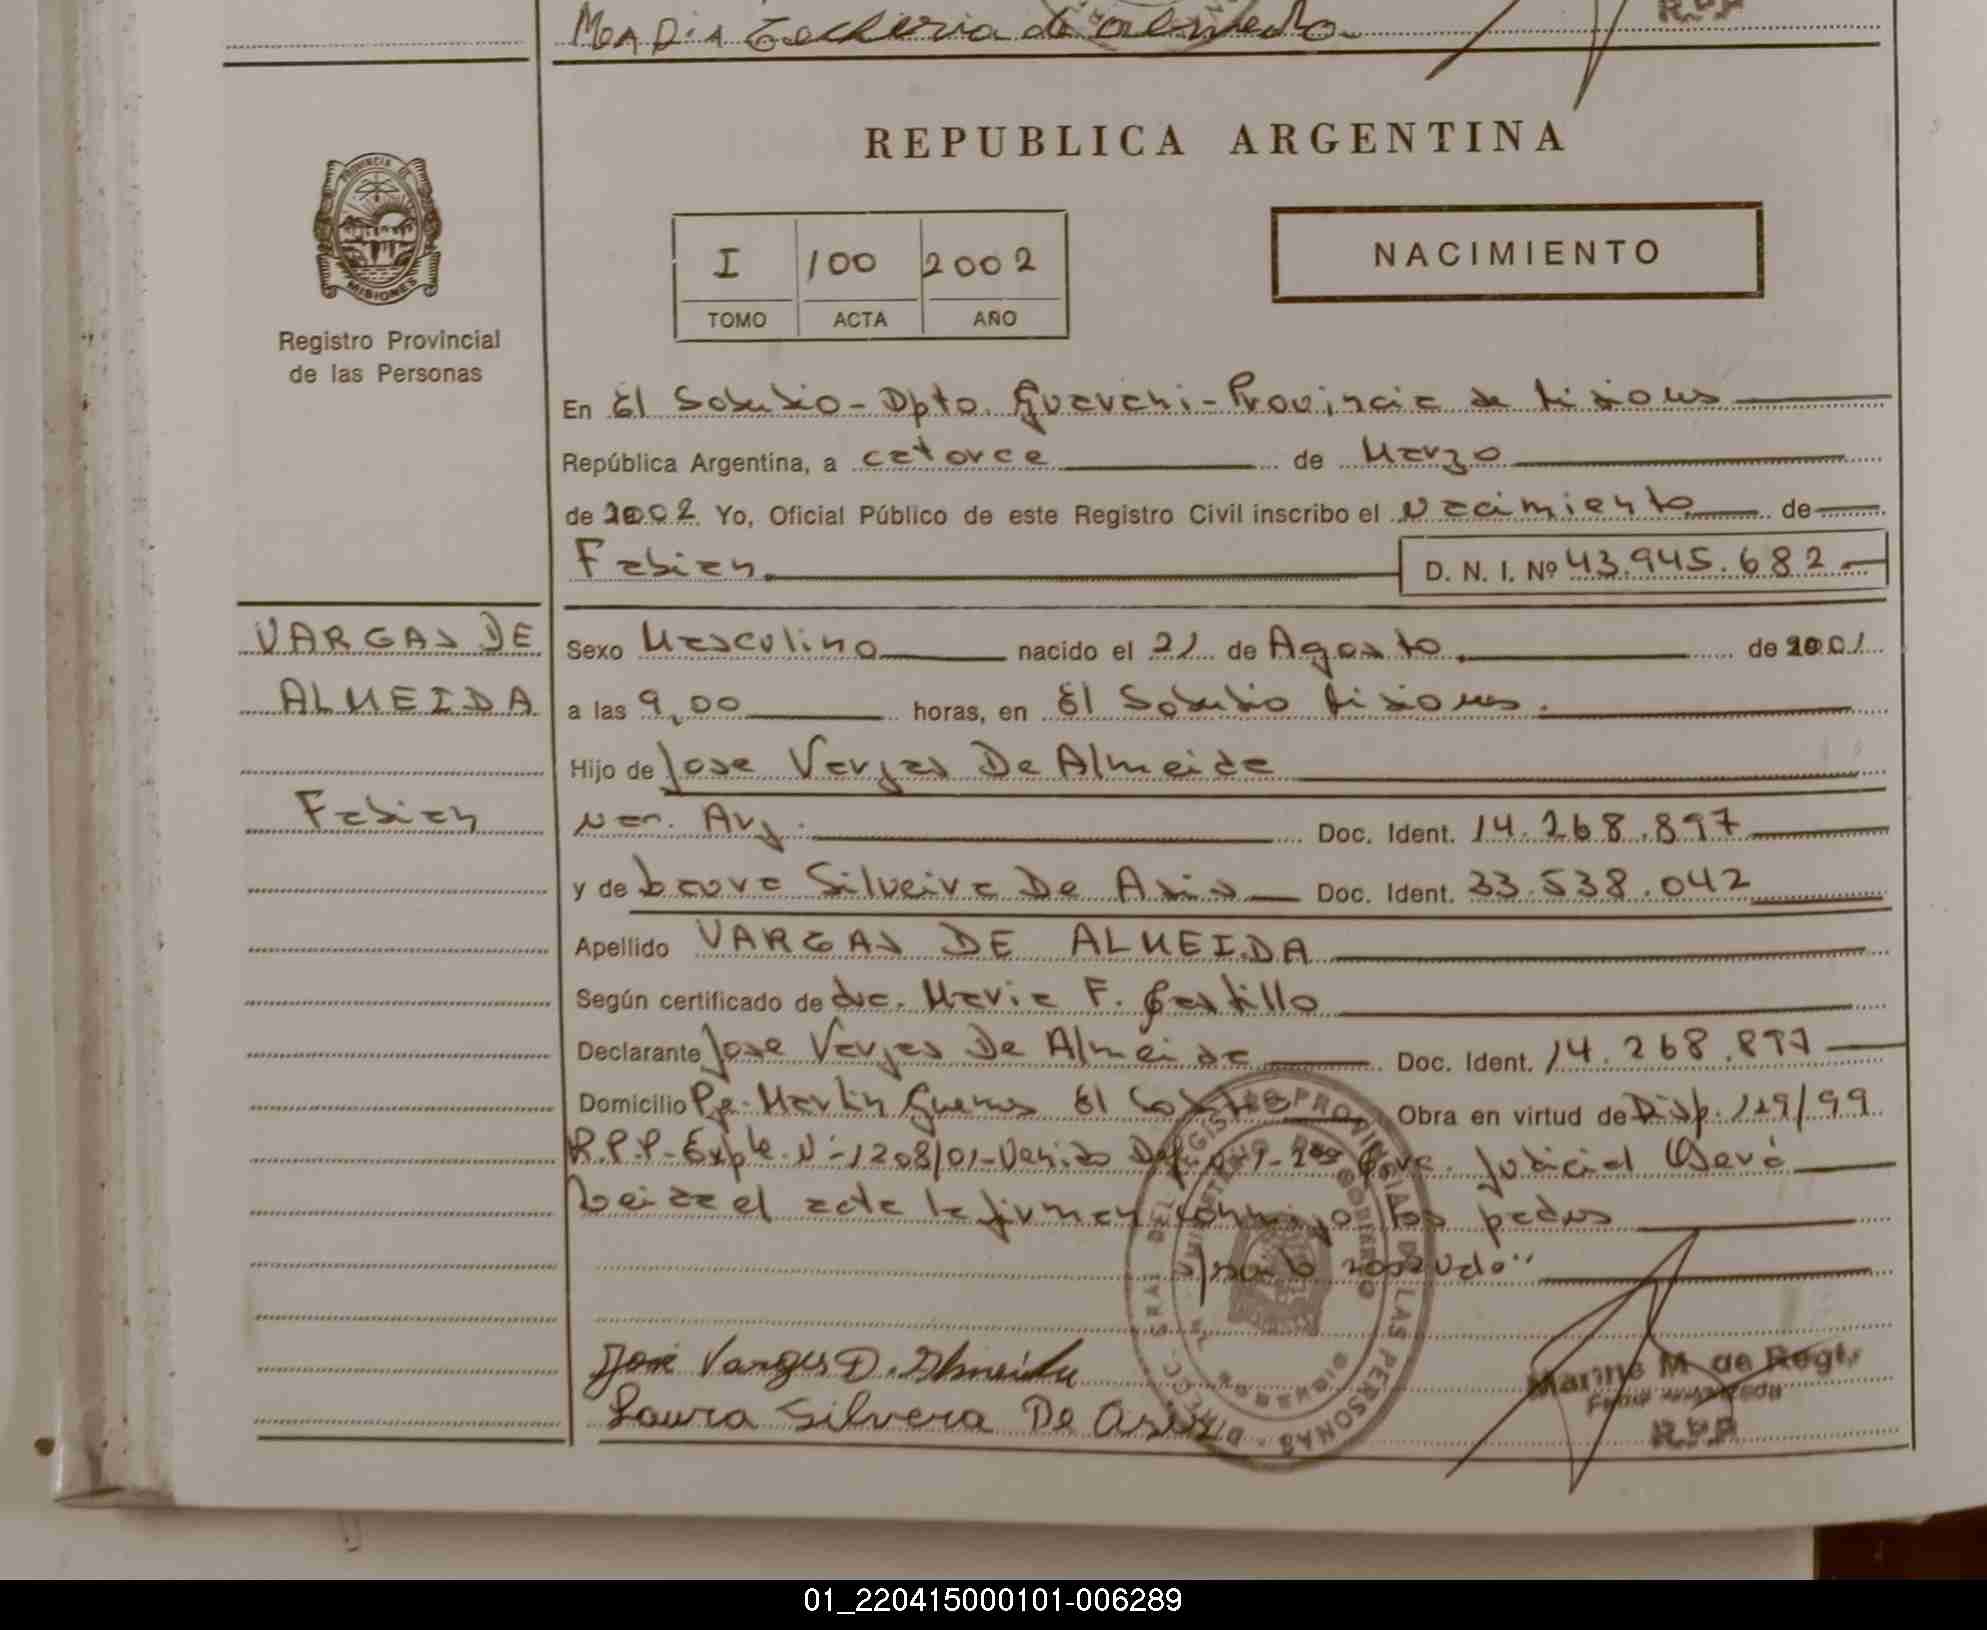 MARIA
REPUBLICA ARGENTINA
PROVINCIA DE
MISIONES
Registro Provincial
de las Personas
I 100 2002
TOMO ACTA AÑO
NACIMIENTO
En El Soberbio - Dpto. Guarani - Provincia de Misiones
República Argentina, a catorce de Marzo
de 2002 Yo, Oficial Público de este Registro Civil inscribo el nacimiento de
Fabian D. N. I. Nº 43.945.682
VARGAS DE
ALMEIDA
Fabian
Sexo Masculino nacido el 21 de Agosto de 2001
a las 9,00 horas, en El Soberbio Misiones.
Hijo de Jose Vargas De Almeida
Nac. Arg. Doc. Ident. 14.268.897
y de Laura Silveira De Asis Doc. Ident. 33.538.042
Apellido VARGAS DE ALMEIDA
Según certificado de dra. Maria F. Castillo
Declarante Jose Vargas De Almeida Doc. Ident. 14.268.897
Domicilio Pje. Martin Guemes El Obra en virtud de Disp. 129/99
R.P.P - Expte. N-1208/01 - Judicial Oberá
Leida el acta la firman conmigo los padres
s/ raspado
José Vargas D. Almeida
Laura Silvera De Asis
DIRECC. GRAL DEL REGISTRO PROVINCIAL DE LAS PERSONAS
MINISTERIO DE GOBIERNO
Marine M de
R.P.P
01_220415000101-006289